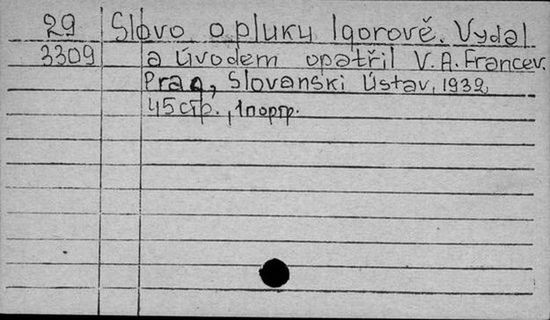 29 Slovo o pluku Igorově. Vydal
3309 a úvodem opatřil V. A. Francev.
Prag, Slovanski Ústav, 1932,
45 стр., 1 портр.